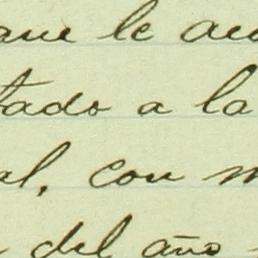 que le acu
tado a la
al, con m
del año